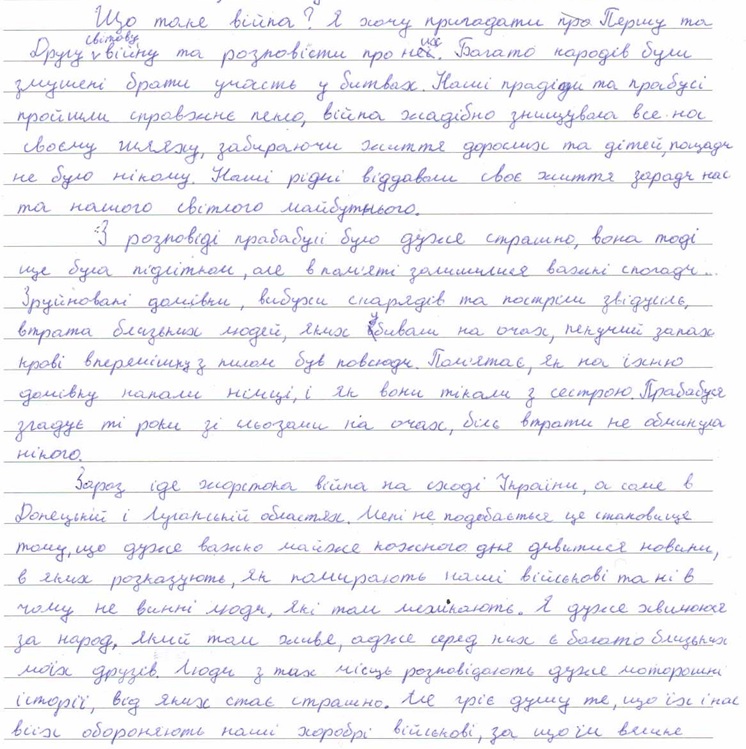 Що таке війна? Я хочу пригадати про Першу та
Другу світову війну та розповісти про неї. Багато народів були
змушені брати участь у битвах. Наші прадіди та прабусі
пройшли справжнє пекло, війна жадібно знищувала все на
своєму шляху, забираючи життя дорослих та дітей, пощади
не було нікому. Наші рідні віддавали своє життя заради нас
та нашого світлого майбутнього.
З розповіді прабабусі було дуже страшно, вона тоді
ще була підлітком, але в пам'яті залишилися важкі спогади...
Зруйновані домівки, вибухи снарядів та постріли звідусіль,
втрата близьких людей, яких убивали на очах, пекучий запах
крові впереміжку з пилом був повсюди. Пам'ятає, як на їхню
домівку напали німці, і як вони тікали з сестрою. Прабабуся
згадує ті роки зі сльозами на очах, біль втрати не обминула
нікого.
Зараз іде жорстока війна на сході України, а саме в
Донецькій і Луганській областях. Мені не подобається це становище
тому, що дуже важко майже кожного дня дивитися новини,
в яких розказують, як помирають наші військові та ні в
чому не винні люди, які там мешкають. Я дуже хвилююся
за народ, який там живе, адже серед них є багато близьких
моїх друзів. Люди з тах місць розповідають дуже моторошні
історії, від яких стає страшно. Але гріє душу те, що їх і нас
всіх обороняють наші хоробрі військові, за що їм велике